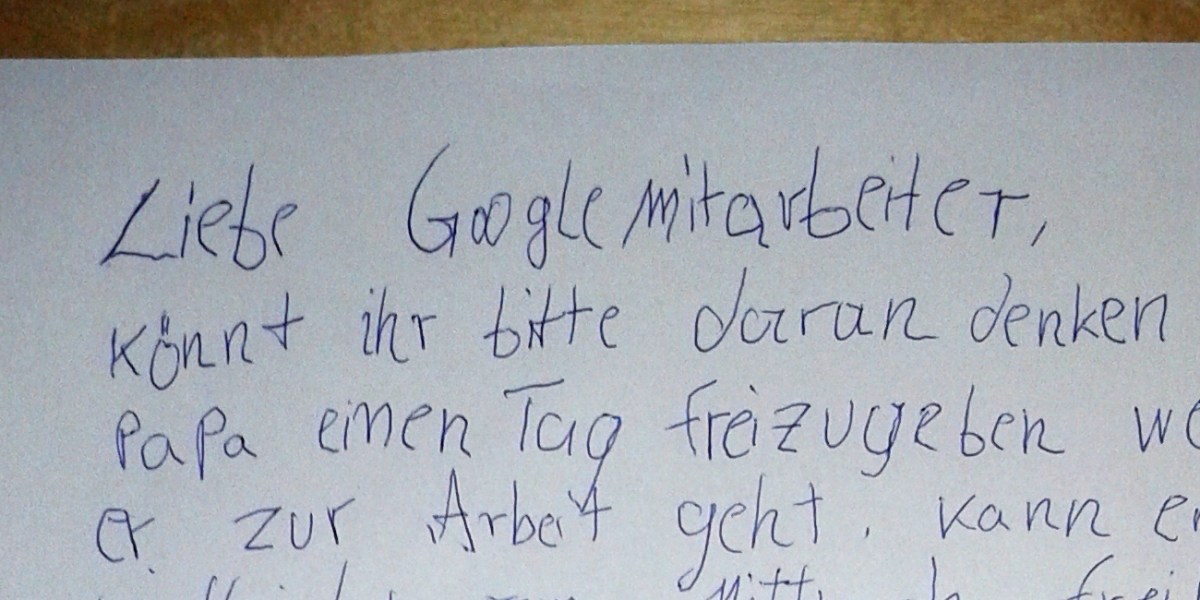 Liebe Googlemitarbeiter,
könnt ihr bitte daran denken
Papa einen Tag freizugeben
er zur Arbeit geht. kann